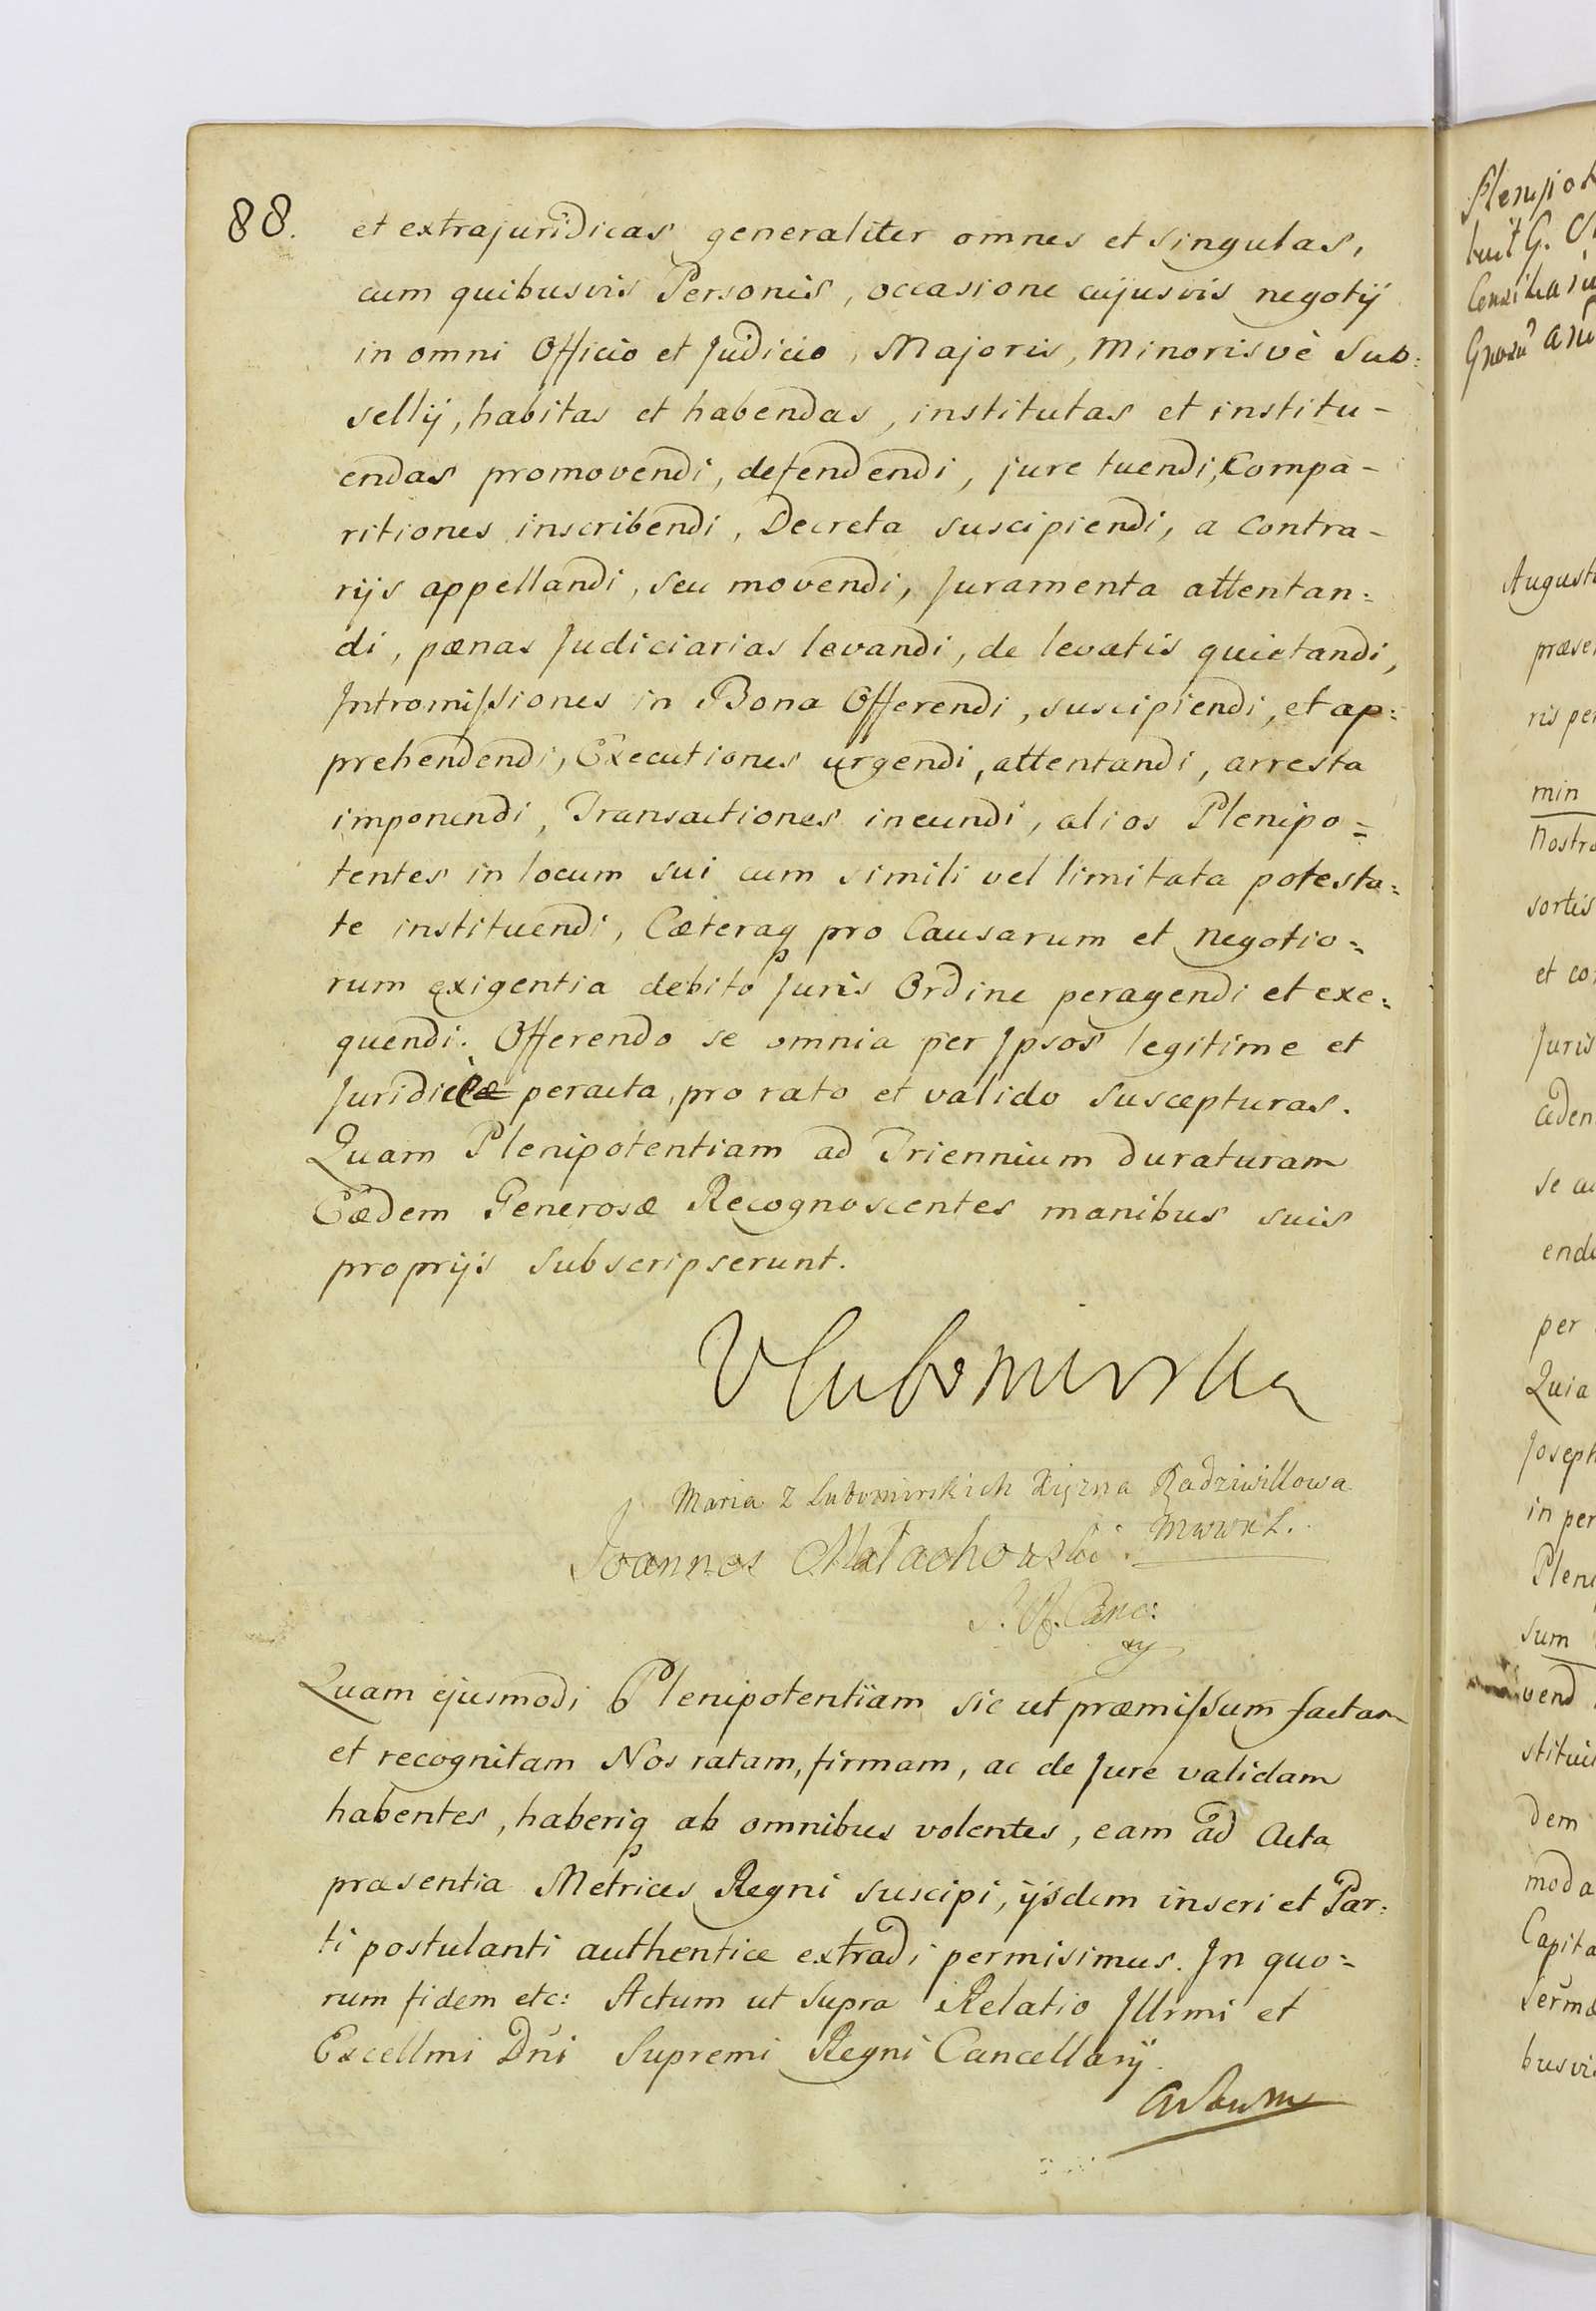 88.
et extrajuridicas generaliter omnes et singulas,
cum quibusvis Personis, occasione cujusvis negotij
in omni Officio et Judicio, Majoris, Minorisvè Sub:
sellij, habitas et habendas, institutas et institu-
endas promovendi, defendendi, jure tuendi, Compa-
ritiones inscribendi, Decreta suscipiendi, a Contra-
rijs appellandi, seu movendi, Juramenta attentan:
di, pœnas Judiciarias levandi, de levatis quietandi,
Intromissiones in Bona Offerendi, suscipiendi, et ap:
prehendendi, Executiones urgendi, attentandi, arresta
imponendi, Transactiones ineundi, alios Plenipo=
tentes in locum sui cum simili vel limitata potesta:
te instituendi, Cæteraq pro Causarum et Negotio=
rum exigentia debito Juris Ordine peragendi et exe:
quendi. Offerendo se omnia per Ipsos legitime et
Juridicè peracta, pro rato et valido suscepturas.
Quam Plenipotentiam ad Triennium duraturam
Eædem Generosæ Recognoscentes manibus suis
proprijs subscripserunt.
Lubomirska
Maria z Lubomirskich Xiężna Radziwiłłowa
MWWXL.
Joannes Małachowski.
S. R. Canc:
Quam ejusmodi Plenipotentiam sic ut præmissum factam
et recognitam Nos ratam, firmam, ac de Jure validam
habentes, haberiq ab omnibus volentes, eam ad Acta
præsentia Metrices Regni suscipi, ijsdem inseri et Par:
ti postulanti authentice extradi permisimus. In quo=
rum fidem etc: Actum ut supra Relatio Illrmi et
Excellmi Dni Supremi Regni Cancellarij.
August
ris per
min
Nostra
sortis
et co
Juris
ceden
se
per
Quia
Joseph
in per
Plen
sum
vend
stitui
dem
moda
Capita